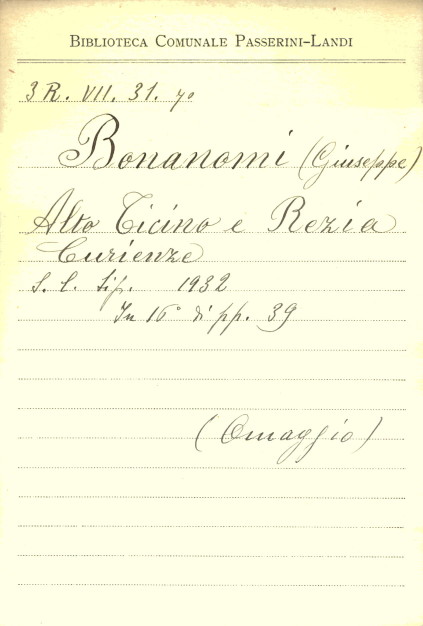 BIBLIOTECA COMUNALE PASSERINI-LANDI
3 R. VII. 31. 7º
Bonanomi (Giuseppe)
Alto Ticino e Rezia
Curienze
S. l. tip. 1932
In 16° di pp. 39
(Omaggio)